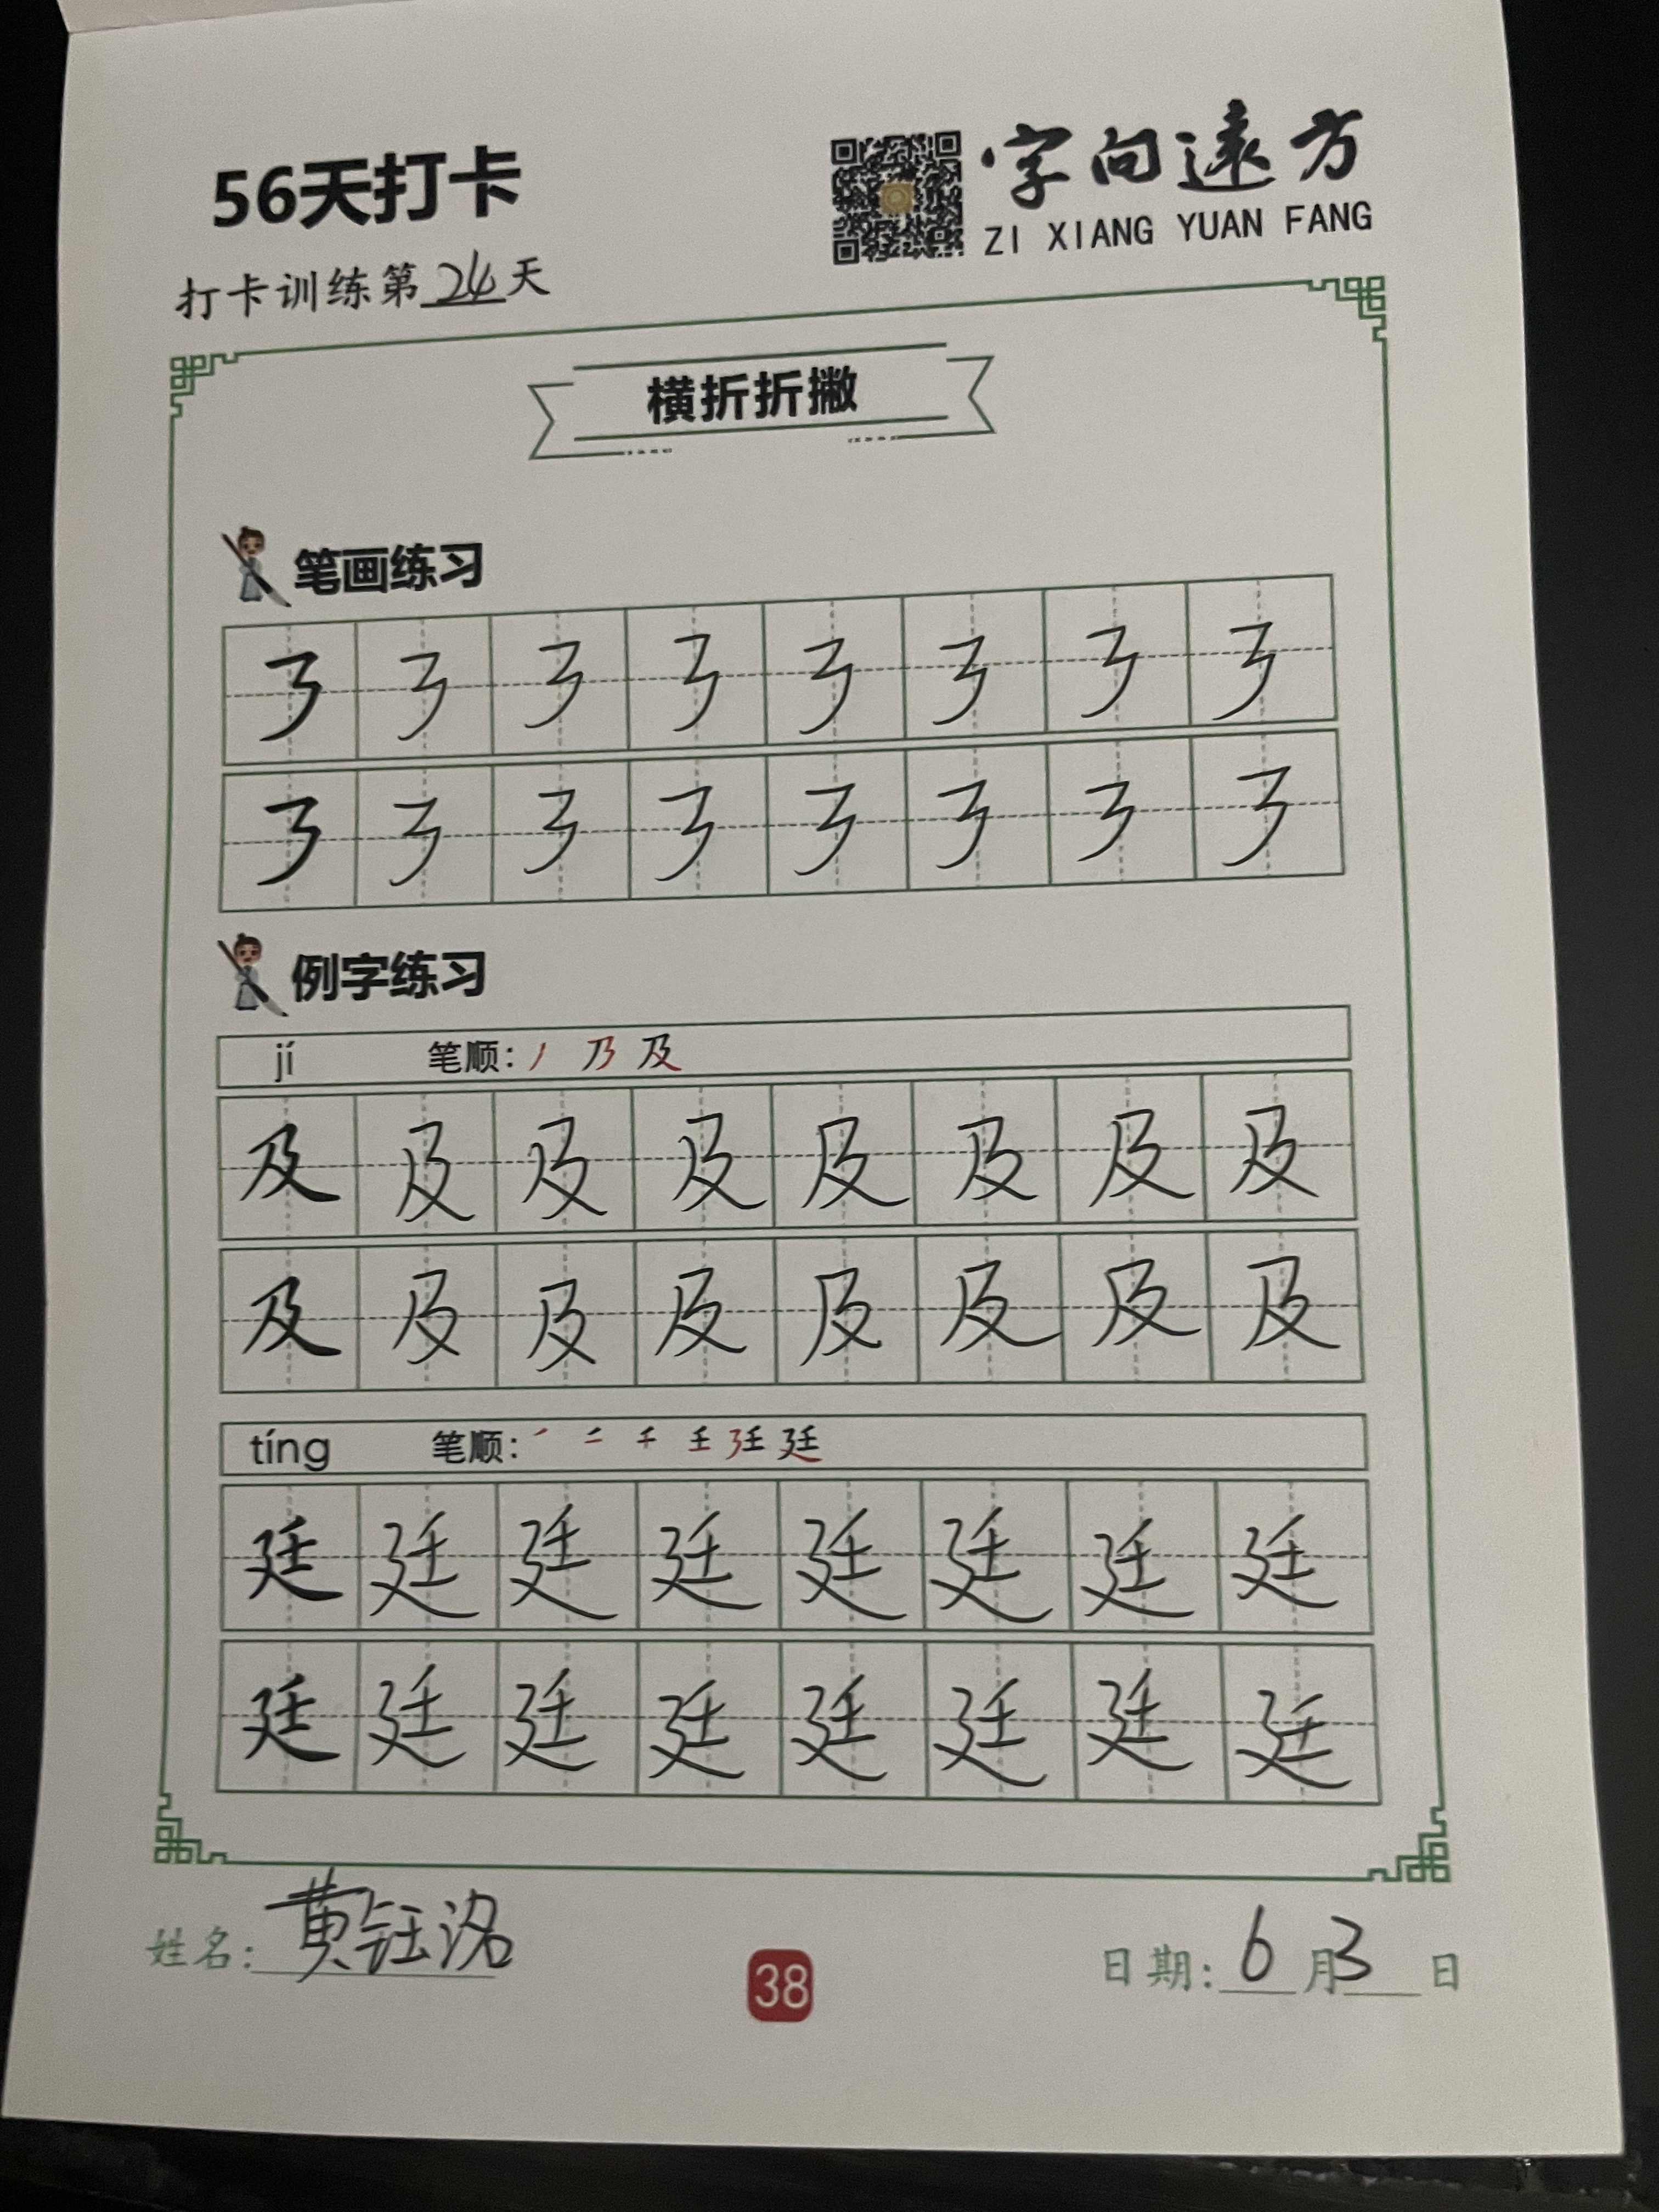 56天打卡
字向遠方
ZI XIANG YUAN FANG
打卡训练第24天
横折折撇
笔画练习
㇋ ㇋ ㇋ ㇋ ㇋ ㇋ ㇋ ㇋
㇋ ㇋ ㇋ ㇋ ㇋ ㇋ ㇋ ㇋
例字练习
jí 笔顺: 丿 乃 及
及 及 及 及 及 及 及 及
及 及 及 及 及 及 及 及
tíng 笔顺: ㇒ 二 千 壬 廷 廷
廷 廷 廷 廷 廷 廷 廷 廷
廷 廷 廷 廷 廷 廷 廷 廷
姓名: 黄钰洺
38
日期: 6月3日